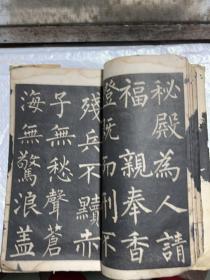 秘殿為人請
福親奉香
燈既而刑不
殘兵不黷赤
子無愁聲蒼
海無驚浪蓋